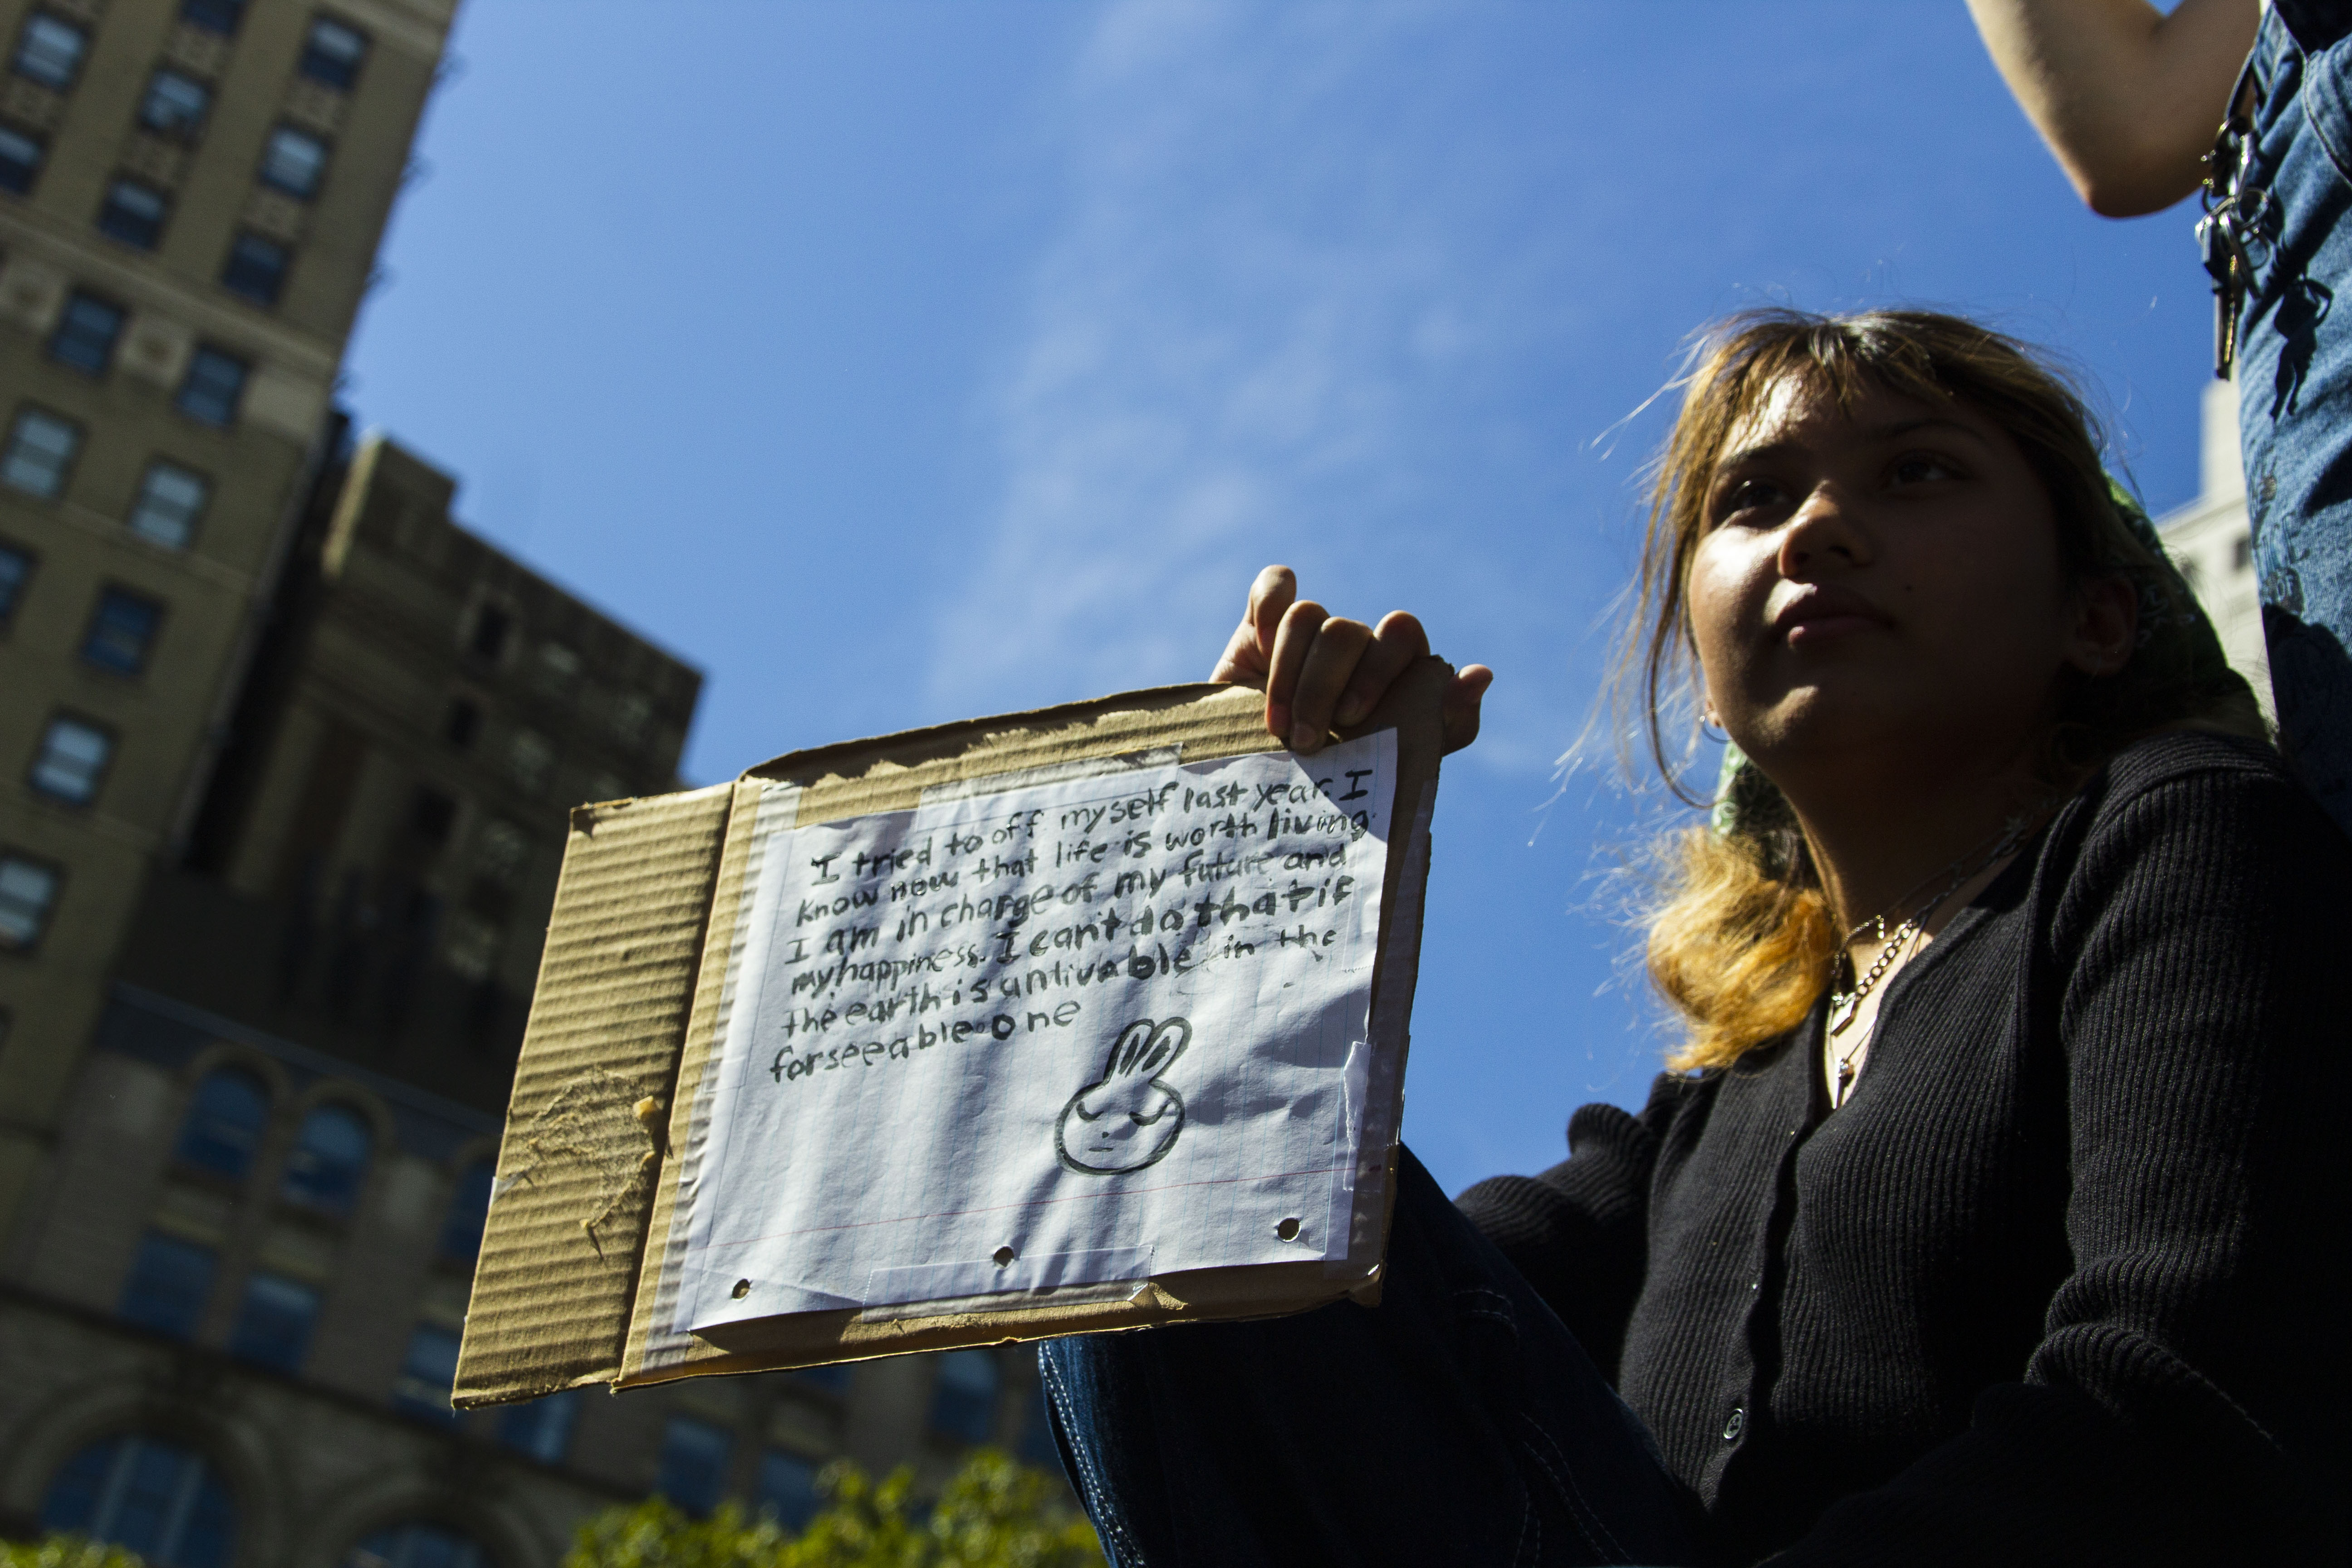 I tried to off myself last year. I
know now that life is worth living.
I am in charge of my future and
my happiness. I can't do that if
the earth is unlivable in the
forseeable one